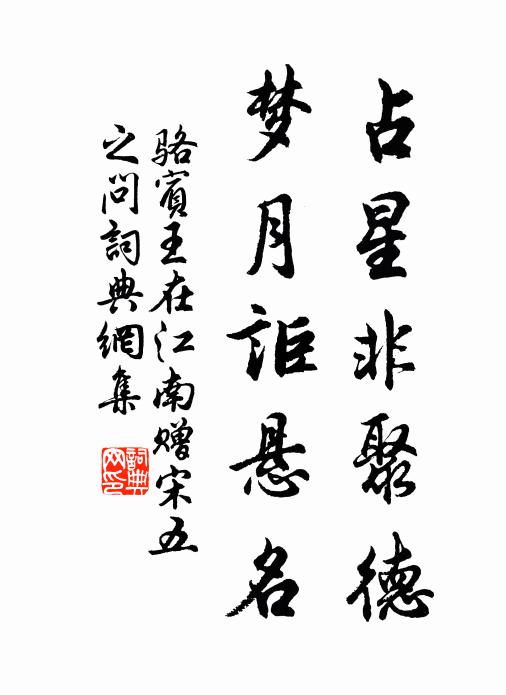 占星非聚德
梦月讵悬名
骆賓王在江南赠宋五
之问詞典網集
詞典网印